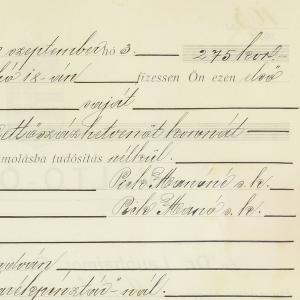 szeptember hó 3. 275 kor.
hó 18-án fizessen Ön ezen első
saját
Kettőszázhetvenöt koronát
ámolásba tudósítás nélkül.
Pick Manóné s. k.
Pick Manó s. k.
takarékpénztár"-nál.